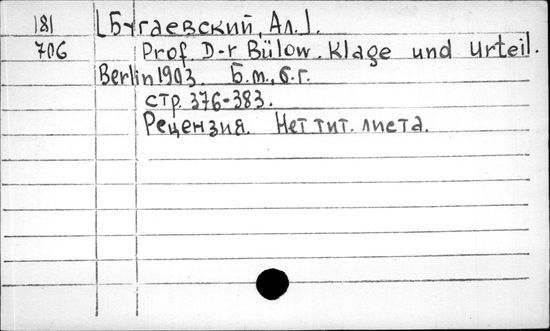 181 [Бугаевский, Ал.].
706 Prof. D-r Bülow. Klage und Urteil.
Berlin 1903. Б.m., б.г.
стр. 376-383.
Рецензия. Нет тит. листа.